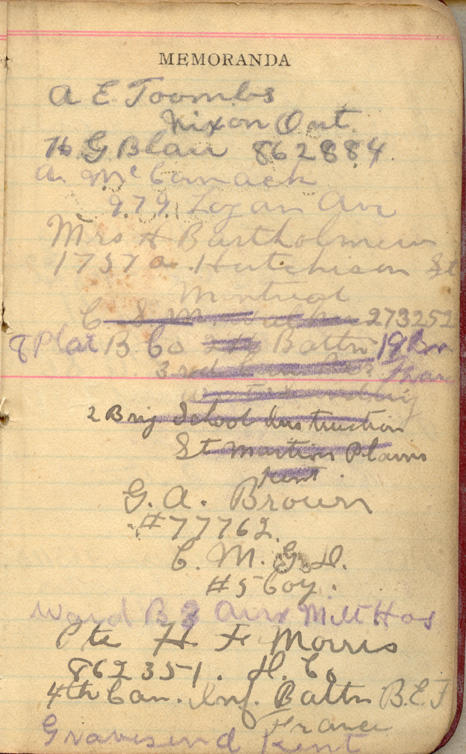 MEMORANDA
A E Toombs
Nixon Ont.
H G Blair 862884.
A. McCormack
979 Logan Ave
Mrs H Bartholmew
1757a. Hutchison St
Montreal
C S M 273252
8 Plat B Co Battn 19 Bn
2 Brig School Instruction
St Martins Plains
Kent
G. A. Brown
#77762.
C. M. G. D.
#5 Coy.
Ward B 3 Aux Milt Hos
Pte H F Morris
862351. D. Co
4th Can. Inf. Battn B.E.F
France
Gravesend Kent